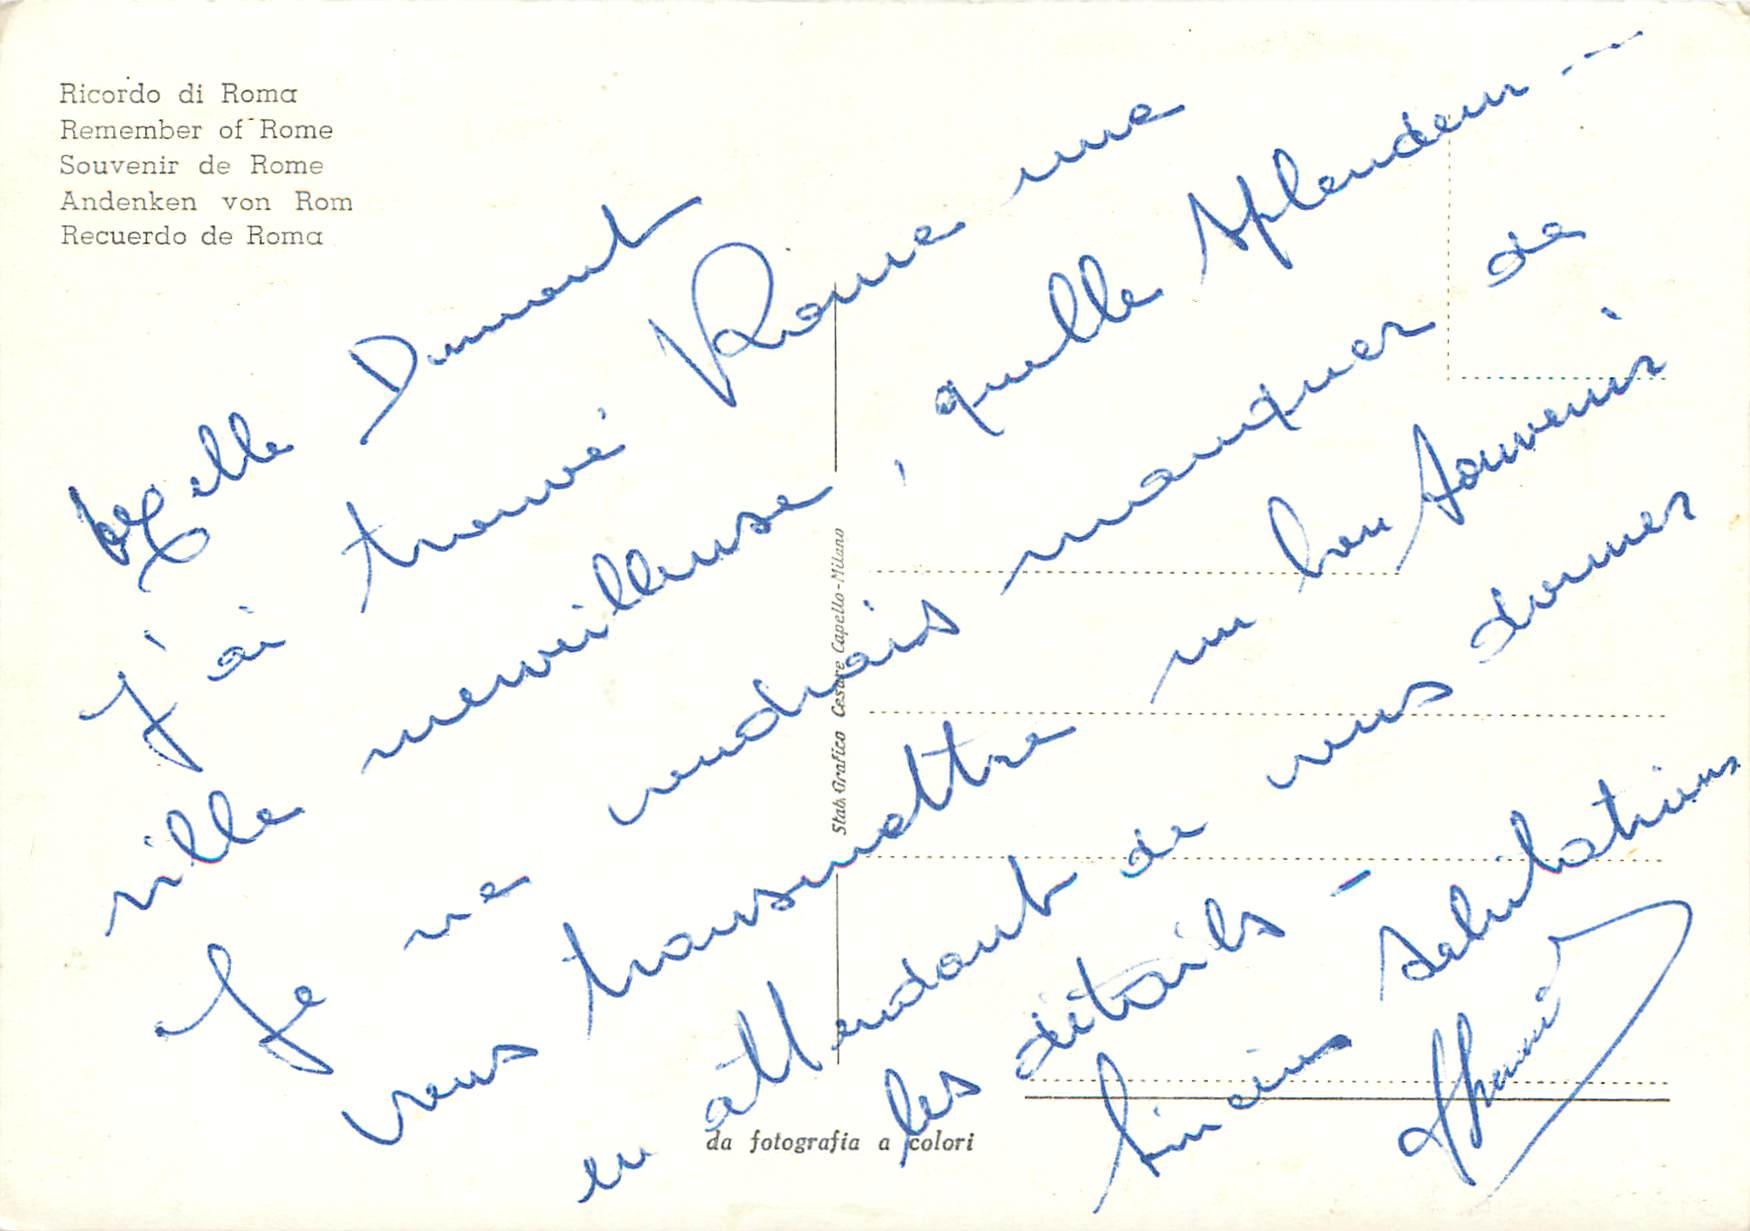 Ricordo di Roma
Remember of Rome
Souvenir de Rome
Andenken von Rom
Recuerdo de Roma
Melle Dumont
J'ai trouvé Rome une
ville merveilleuse, quelle splendeur ---
Je ne voudrais manquer de
vous transmettre un bon souvenir
en attendant de vous donner
les détails -
Sincères salutations
Stab. Grafico Cesare Capello - Milano
da fotografia a colori